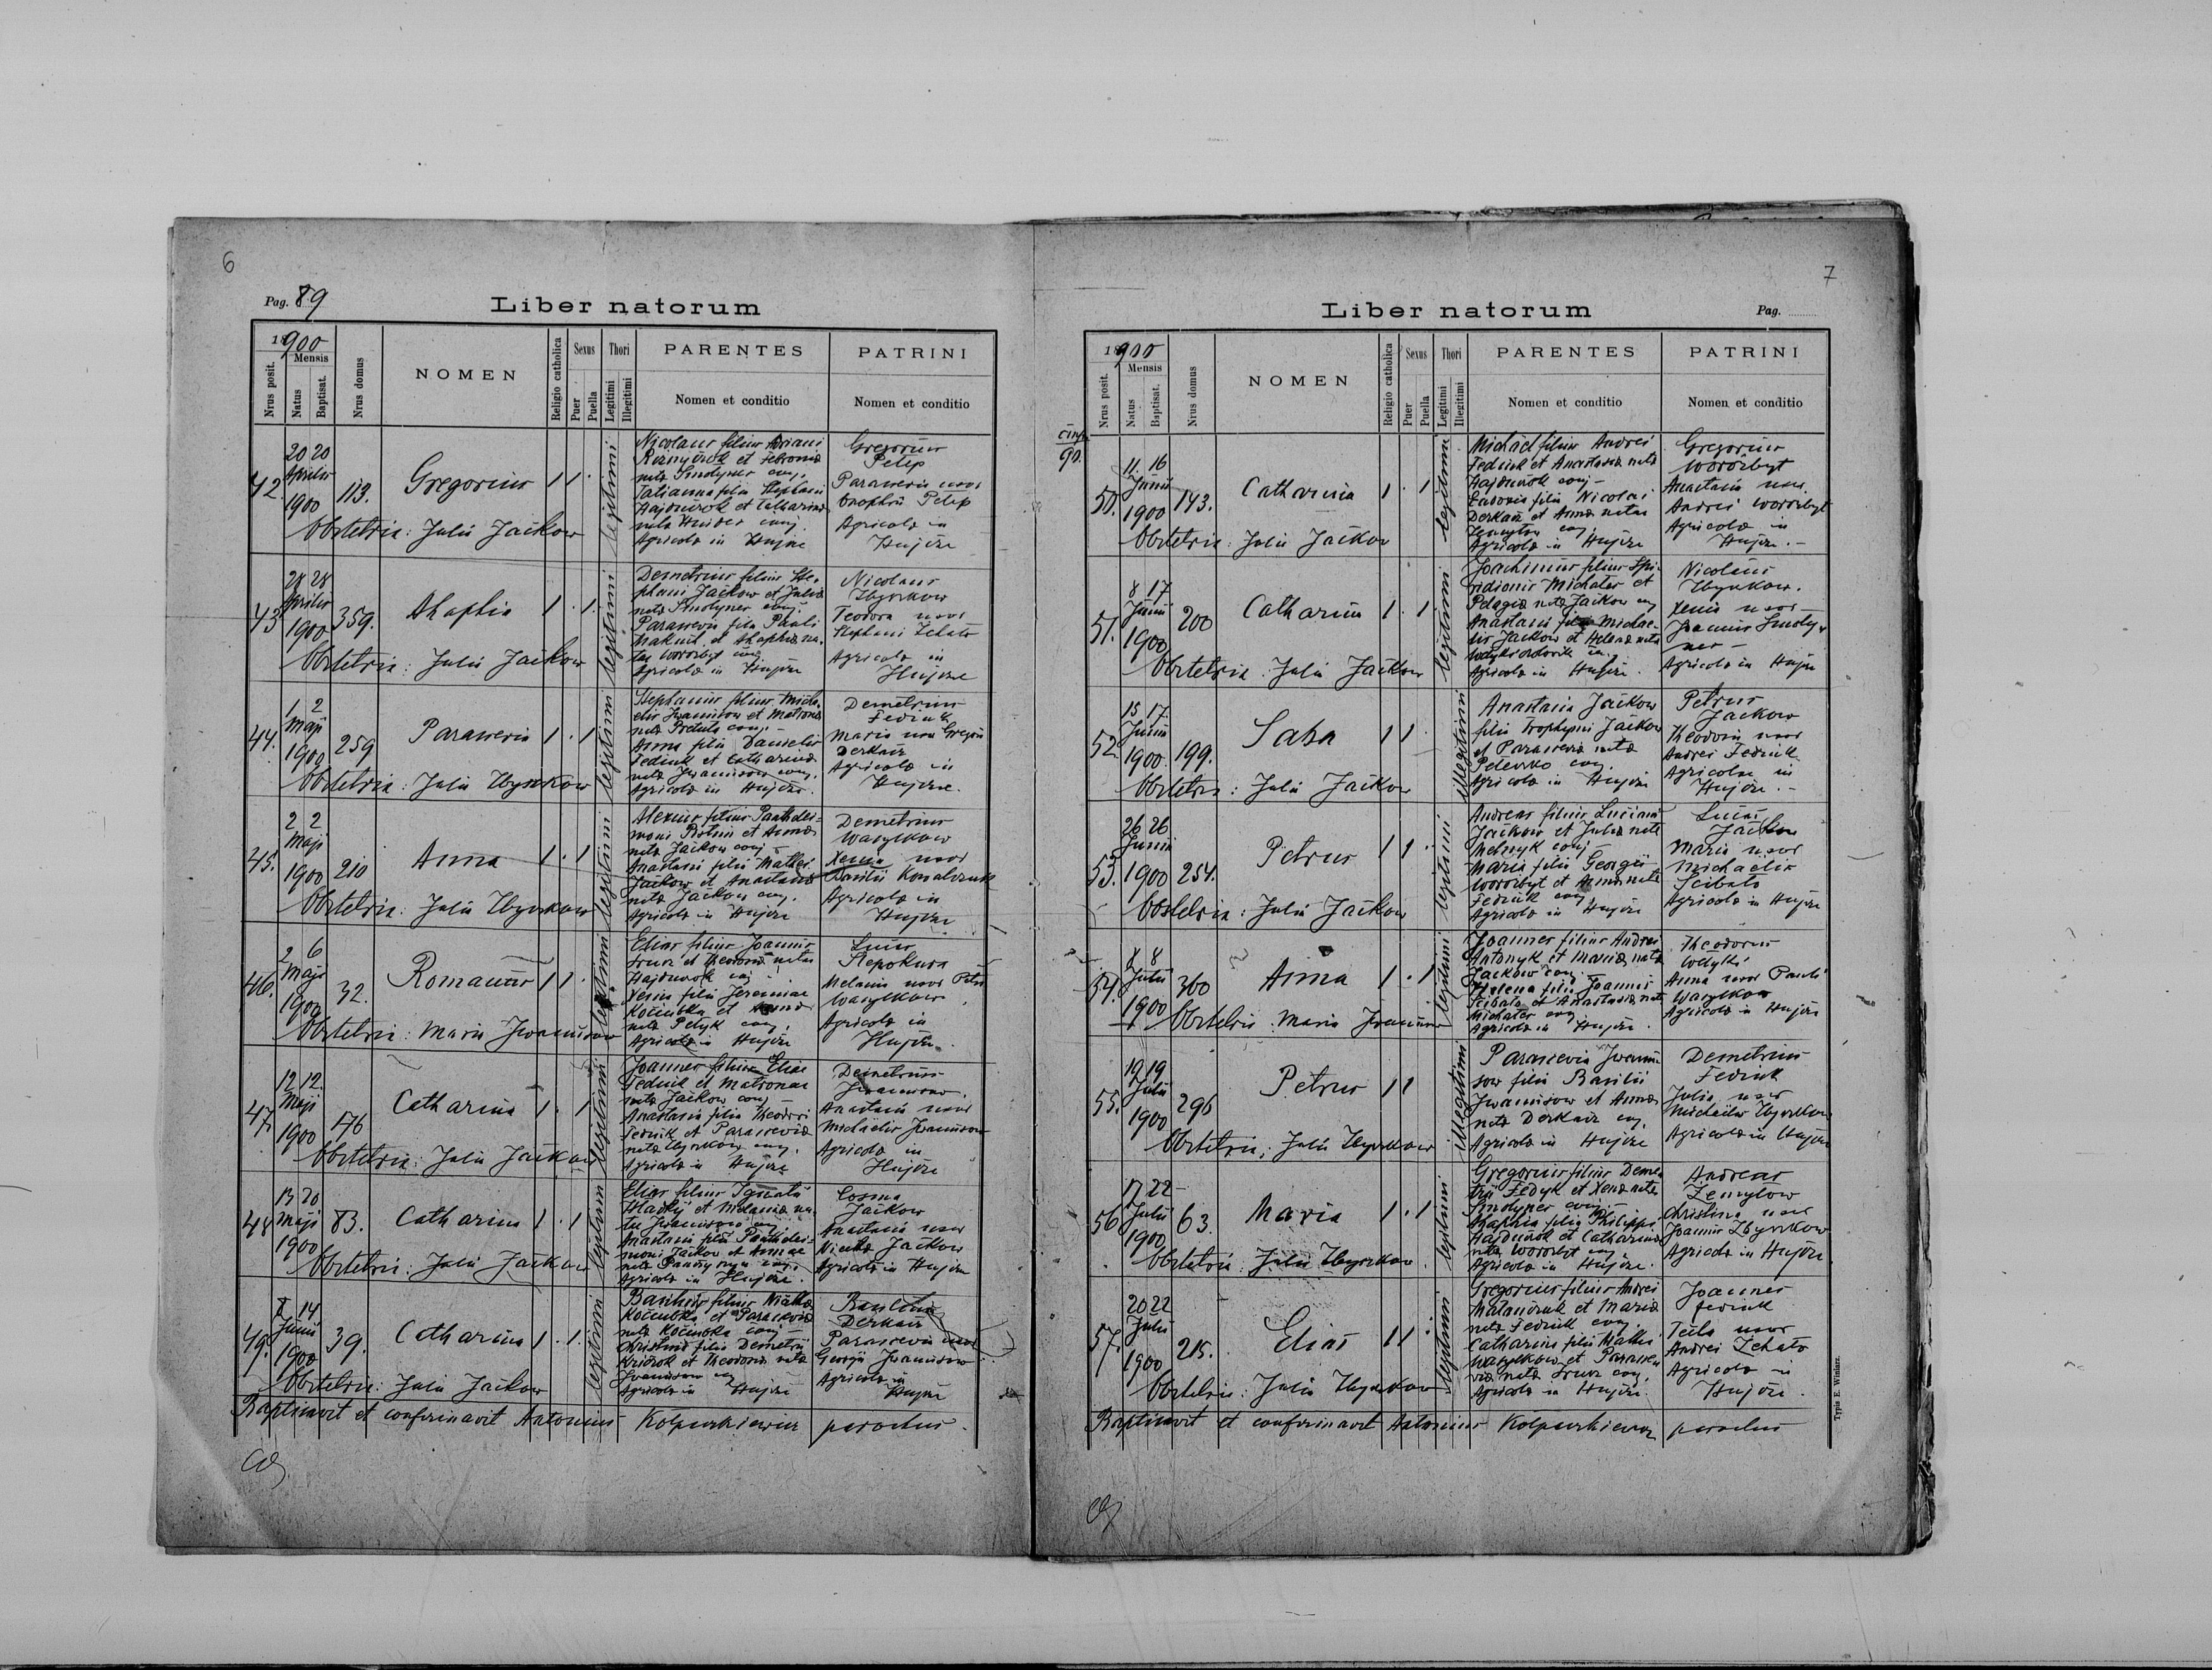 6
Pag. 89
Liber natorum
1900
Mensis
Nrus posit.
Natus
Baptisat.
Nrus domus
NOMEN
Religio catholica
Sexus
Puer
Puella
Thori
Legitimi
Illegitimi
PARENTES
Nomen et conditio
PATRINI
Nomen et conditio
42.
20 20
Aprilis
1900
113.
Gregorius
1 1 .
legitimi
Nicolaus filius Adriani
et Febronia
nata Smolyner conj.
Tatianna filia Stephani
Hajduczok et Catharina
conj.
Agricola in Hujcze
Gregorius
Petep
Parascevia uxor
Onophrii Petep
Agricola in
Hujcze
Obstetrix: Julia Jaćkow
43
28 28
Aprilis
1900
359.
Ahaphia
1 . 1.
legitimi
Demetrius filius Ste-
phani Jaćkow et Julia
nata Smolyner conj.
Parascevia filia Pauli
et Ahaphia na-
tae Worobyt conj.
Agricola in Hujcze
Nicolaus
Zbyrkow
Teodora uxor
Stephani
Agricola in
Hujcze
Obstetrix: Julia Jaćkow
44.
1 2
Maji
1900
259
Parascevia
1 . 1
legitimi
Stephanus filius Micha-
elis Iwanisow et Matrona
nata conj.
Anna filia Danielis
Fediuk et Catharina
nata Iwanisow conj.
Agricola in Hujcze.
Demetrius
Fediuk
Maria uxor Gregorii
Derkacz
Agricola in
Hujcze.
Obstetrix: Julia Zbyrkow
45.
2 2
Maji
1900
210
Anna
1 . 1
legitimi
Alexius filius Panthelei-
moni et Anna
nata Jaćkow conj.
Anastasia filia Mathei
Jaćkow et Anastasia
nata Jackow conj.
Agricola in Hujcze
Demetrius
Wasylkow
Xenia uxor
Basilii Kowalczuk
Agricola in
Hujcze
Obstetrix: Julia Zbyrkow
46.
2 6
Maji
1900
32.
Romanus
1 1 .
legitimi
Elias filius Joannis
et Theodora natae
Hajduczok conj.
Xenia filia Jeremiae
Koćiubka et Anna
nata Petyk conj.
Agricola in Hujcze
Lucas
Stepokura
Melania uxor Petri
Wasylkow
Agricola in
Hujcze.
Obstetrix: Maria Iwanisow
47.
12 12.
Maji
1900
176
Catharina
1 . 1
legitimi
Joannes filius Eliae
Fediuk et Matronae
nata Jaćkow conj.
Anastasia filia Theodori
Fediuk et Parascevia
nata Zbyrkow conj.
Agricola in Hujcze
Demetrius
Iwanisow.
Anastasia uxor
Michaelis Iwanisow
Agricola in
Hujcze
Obstetrix: Julia Jaćkow
48
13 20
Maji
1900
83.
Catharina
1 . 1
legitimi
Elias filius Ignatii
Hladkij et Melania na-
tae Iwanisow conj.
Anastasia filia Panthelei-
moni Jaćkow et Annae
nata conj.
Agricola in Hujcze.
Cosma
Jaćkow
Anastasia uxor
Jaćkow
Agricola in Hujcze
Obstetrix: Julia Jaćkow
49.
8 14
Junii
1900
39.
Catharina
1 . 1.
legitimi
Basilius filius
Koćiubka et Parascevia
nata Koćiubka conj.
Christina filia Demetrii
et Theodora nata
Iwanisow conj.
Agricola in Hujcze
Basilius
Derkacz
Parascevia uxor
Georgii Iwanisow
Agricola in
Hujcze
Obstetrix: Julia Jaćkow
Baptisavit et confirmavit Antonius Kolpaczkiewicz parochus.
7
Liber natorum
Pag.
1900
Mensis
Nrus posit.
Natus
Baptisat.
Nrus domus
NOMEN
Religio catholica
Sexus
Puer
Puella
Thori
Legitimi
Illegitimi
PARENTES
Nomen et conditio
PATRINI
Nomen et conditio
90.
50.
11. 16
Junii
1900
143.
Catharina
1 . 1
legitimi
Michael filius Andrei
Fediuk et Anastasia nata
Hajduczok conj.
Eudoxia filia Nicolai
Derkacz et Anna natae
Zemylow conj.
Agricola in Hujcze
Gregorius
Worobyt
Anastasia uxor
Andrei Worobyt
Agricola in
Hujcze.
Obstetrix: Julia Jaćkow
51.
8 17
Junii
1900
200
Catharina
1 . 1
legitimi
Joachimus filius Spi-
ridionis Michater et
Pelagia nata Jaćkow conj
Anastasia filia Michae-
lis Jaćkow et Helena nata
Agricola in Hujcze.
Nicolaus
Zbyrkow.
Xenia uxor
Joannis Smoly-
ner
Agricola in Hujcze
Obstetrix: Julia Jaćkow
52
15 17.
Junii
1900.
199.
Saba
1 1
illegitimi
Anastasia Jaćkow
filia Trophymi Jaćkow
et Parascevia nata
conj.
Agricola in Hujcze
Petrus
Jackow
Theodosia uxor
Andrei Fediuk
Agricolae in
Hujcze.
Obstetrix: Julia Jaćkow
53.
26 26
Junii
1900
254.
Petrus
1 1 .
legitimi
Andreas filius Luciani
Jaćkow et Julia nata
Melnyk conj.
Maria filia Georgii
Worobyt et Anna nata
Fediuk conj.
Agricola in Hujcze
Lucas
Jaćkow
Maria uxor
Michaelis
Scibalo
Agricola in Hujcze
Obstetrix: Julia Jaćkow
54.
8 8
Julii
1900
360
Anna
1 . 1
legitimi
Joannes filius Andrei
Antonyk et Maria nata
Jackow conj.
Helena filia Joannis
Scibalo et Anastasia nata
Michater conj.
Agricola in Hujcze.
Theodorus
Anna uxor Pauli
Wasylkow
Agricola in Hujcze
Obstetrix: Maria Iwanisow
55.
19 19
Julii
1900
296
Petrus
1 1
illegitimi
Parascevia Iwani-
sow filia Basilii
Iwanisow et Anna
nata Derkacz conj.
Agricola in Hujcze
Demetrius
Fediuk
Julia uxor
Michaelis Zbyrkow
Agricola in Hujcze
Obstetrix: Julia Zbyrkow
56
17 22
Julii
1900
63.
Maria
1 . 1
legitimi
Gregorius filius Deme-
trii Fedyk et Xenia nata
Smolyner conj.
Ahaphia filia Philippi
Hajduczok et Catharina
nata Worobyt conj.
Agricola in Hujcze.
Andreas
Zemylow
Christina uxor
Joannis Zbyrkow
Agricola in Hujcze
Obstetrix: Julia Zbyrkow.
57.
20 22
Julii
1900
215.
Elias
1 1
legitimi
Gregorius filius Andrei
Malanczuk et Maria
nata Fediuk conj.
Catharina filia Mathei
Wasylkow et Parasce-
via nata conj.
Agricola in Hujcze
Joannes
Fediuk
Tecla uxor
Andrei
Agricola in
Hujcze.
Obstetrix: Julia Zbyrkow
Baptisavit et confirmavit Antonius Kolpaczkiewicz parochus
Typis E. Winiarz.